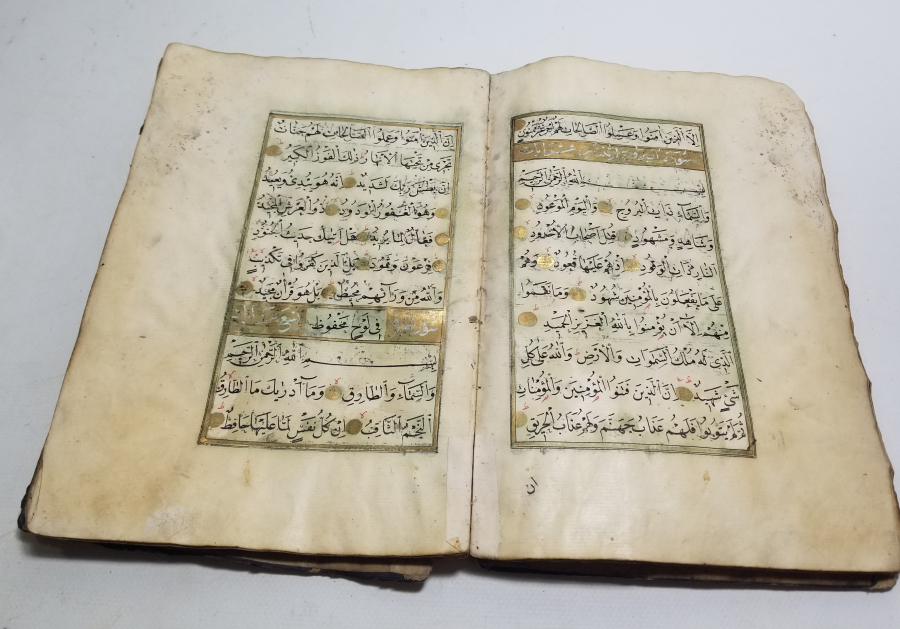 اِلَّا الَّذِينَ اٰمَنُوا وَعَمِلُوا الصَّالِحَاتِ لَهُمْ اَجْرٌ غَيْرُ مَمْنُونٍ
سورة البروج
بِسْمِ اللّٰهِ الرَّحْمٰنِ الرَّحِيمِ
وَالسَّمَاءِ ذَاتِ الْبُرُوجِ وَالْيَوْمِ الْمَوْعُودِ
وَشَاهِدٍ وَمَشْهُودٍ قُتِلَ اَصْحَابُ الْاُخْدُودِ
النَّارِ ذَاتِ الْوَقُودِ اِذْ هُمْ عَلَيْهَا قُعُودٌ وَهُمْ
عَلٰى مَا يَفْعَلُونَ بِالْمُؤْمِنِينَ شُهُودٌ وَمَا نَقَمُوا
مِنْهُمْ اِلَّا اَنْ يُؤْمِنُوا بِاللّٰهِ الْعَزِيزِ الْحَمِيدِ
الَّذِي لَهُ مُلْكُ السَّمٰوَاتِ وَالْاَرْضِ وَاللّٰهُ عَلٰى كُلِّ
شَيْءٍ شَهِيدٌ اِنَّ الَّذِينَ فَتَنُوا الْمُؤْمِنِينَ وَالْمُؤْمِنَاتِ
ثُمَّ لَمْ يَتُوبُوا فَلَهُمْ عَذَابُ جَهَنَّمَ وَلَهُمْ عَذَابُ الْحَرِيقِ
ان
اِنَّ الَّذِينَ اٰمَنُوا وَعَمِلُوا الصَّالِحَاتِ لَهُمْ جَنَّاتٌ
تَجْرِي مِنْ تَحْتِهَا الْاَنْهَارُ ذٰلِكَ الْفَوْزُ الْكَبِيرُ
اِنَّ بَطْشَ رَبِّكَ لَشَدِيدٌ اِنَّهُ هُوَ يُبْدِئُ وَيُعِيدُ
وَهُوَ الْغَفُورُ الْوَدُودُ ذُو الْعَرْشِ الْمَجِيدُ
فَعَّالٌ لِمَا يُرِيدُ هَلْ اَتٰيكَ حَدِيثُ الْجُنُودِ
فِرْعَوْنَ وَثَمُودَ بَلِ الَّذِينَ كَفَرُوا فِي تَكْذِيبٍ
وَاللّٰهُ مِنْ وَرَائِهِمْ مُحِيطٌ بَلْ هُوَ قُرْاٰنٌ مَجِيدٌ
فِي لَوْحٍ مَحْفُوظٍ
بِسْمِ اللّٰهِ الرَّحْمٰنِ الرَّحِيمِ
وَالسَّمَاءِ وَالطَّارِقِ وَمَا اَدْرٰيكَ مَا الطَّارِقُ
اَلنَّجْمُ الثَّاقِبُ اِنْ كُلُّ نَفْسٍ لَمَّا عَلَيْهَا حَافِظٌ